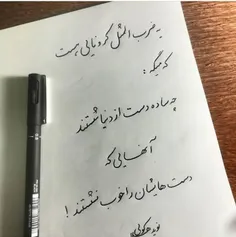 یه ضرب المثل کرونایی هست
که میگه :
چه ساده دست از دنیا شستند
آنهایی که
دست هایشان را خوب نشستند !